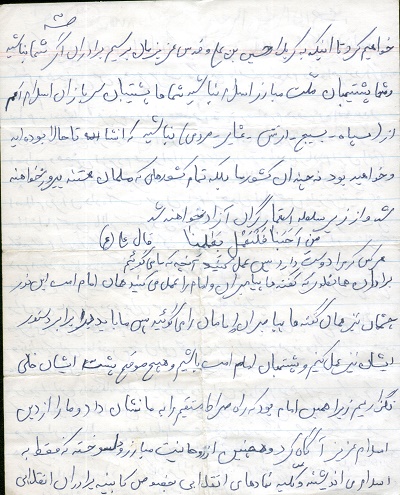 خواهیم کرد تا اینکه به کربلا حسین بن علی و قدس عزیزمان برسیم برادران اگر شما نباشید
و شما پشتیبان ملت مبارز اسلام نباشید شما پشتیبان سربازان اسلام اعم
از (سپاه - بسیج - ارتش - عشایر - مردمی) نباشید که انشا الله تا حالا بوده اید
و خواهید بود نه چندان کشور ما بلکه تمام کشورهای که مسلمان هستند پیروز خواهند
شد و از زیر سلطه استعمارگران آزاد خواهند شد
من احبنا فلیعمل بعملنا قال علی (ع)
هر کس که ما را دوست دارد پس عمل کند آنچه که ما می گوئیم
برادران همانطور که گفته ها پیامبران و امام را عمل می کنید همان امام است این طور
همان نیز همان گفته ها پیامبران و امامان را می گوئید پس ما باید در برابر دستور
ایشان نیز عمل کنیم و پشتیبان امام امت باشیم و هیچ موقع پشت ایشان خالی
نگذاریم زیرا همین امام بود که راه صراط مستقیم را به ما نشان داد و ما را از دین
اسلام عزیز آگاه کرد و همچنین از روحانیت مبارز و دلسوخته که فقط به
اسلام می اندیشند و کلیه نهادهای انقلابی بخصوص کابینه برادران انقلابی